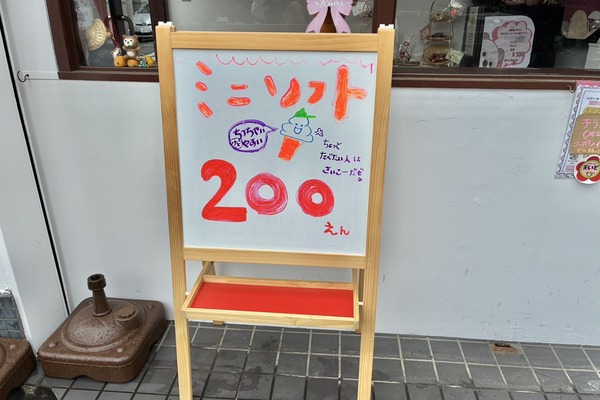 ミニソフト
ちっちゃい
ちょっと
たべたい人は
さいこーだぜ
200
えん